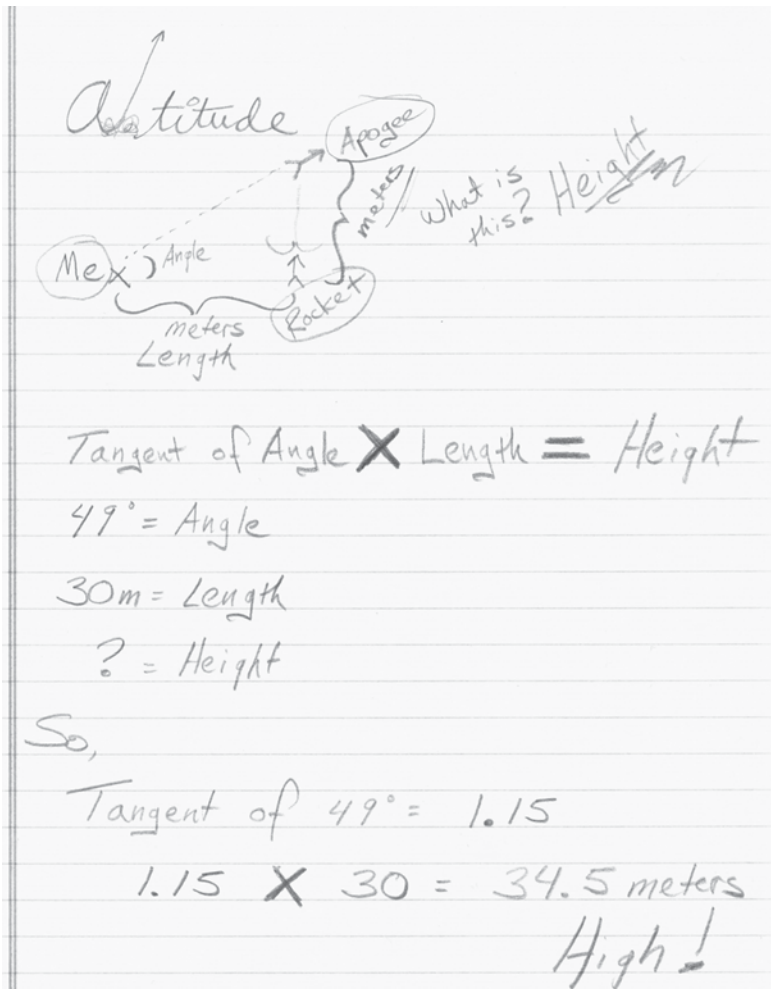 Altitude
Apogee
meters
What is
this? Height
Me
Angle
Rocket
meters
Length
Tangent of Angle X Length = Height
49° = Angle
30m = Length
? = Height
So,
Tangent of 49° = 1.15
1.15 X 30 = 34.5 meters
High!